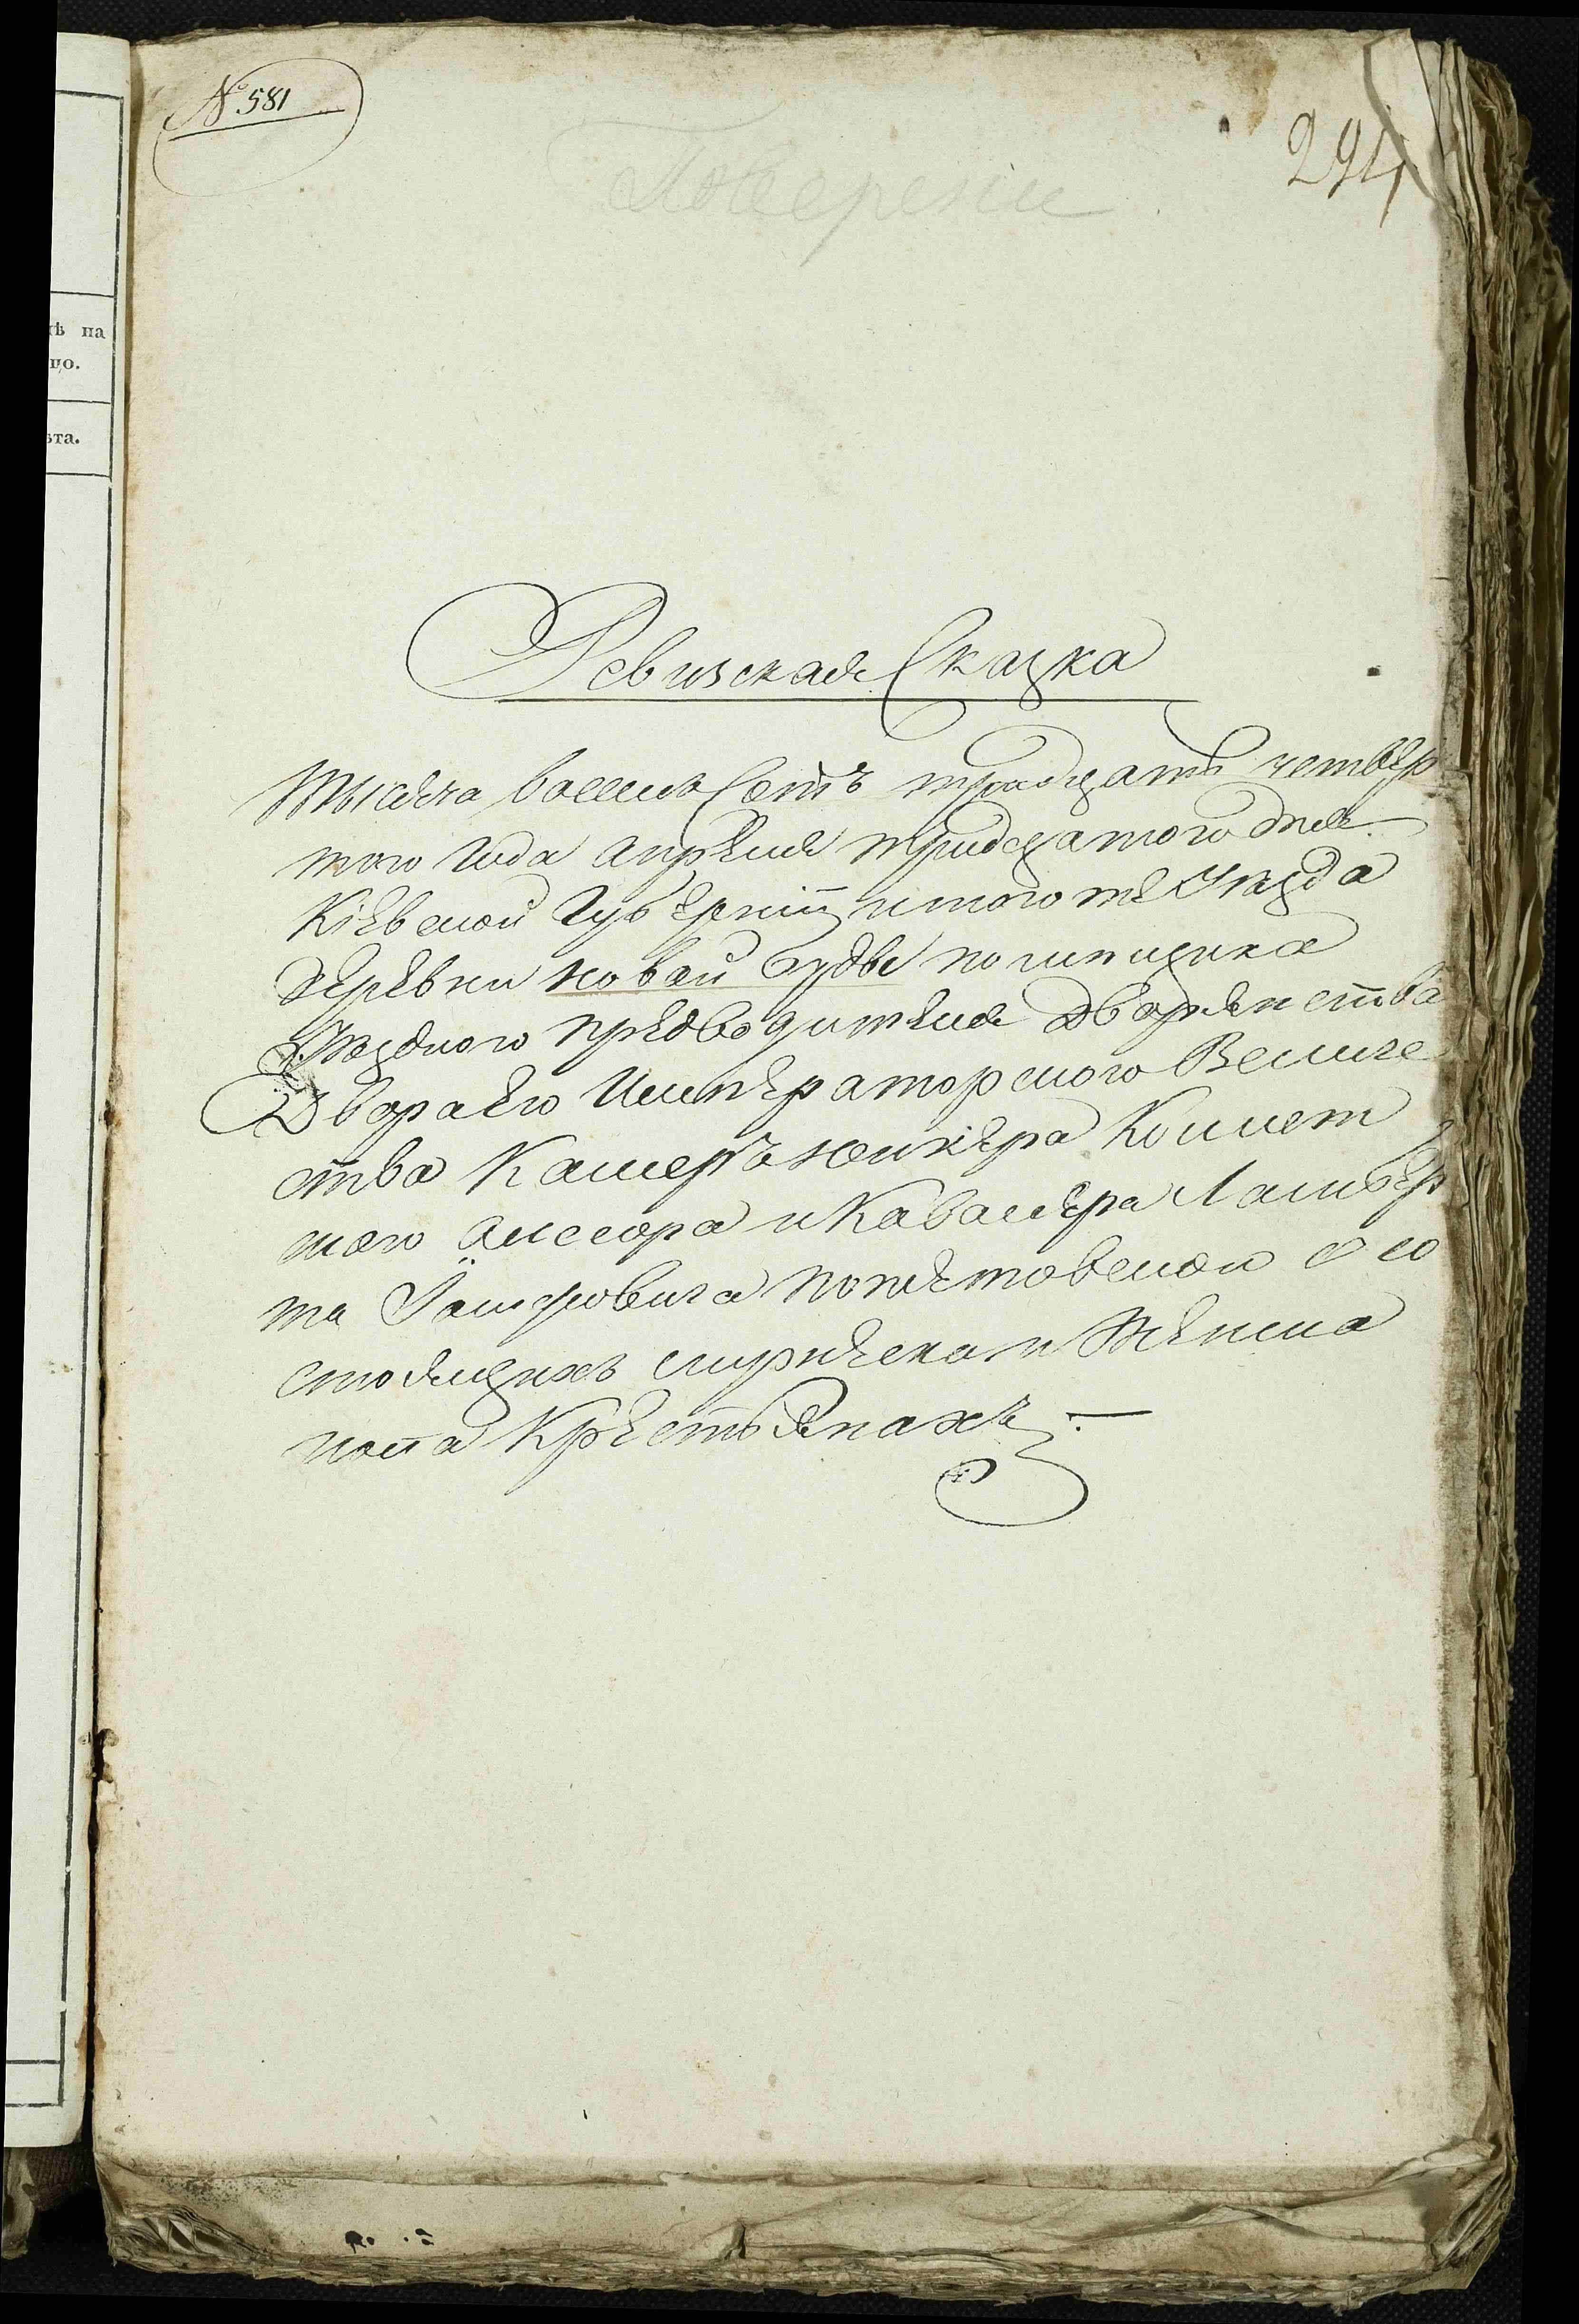 № 581
294
ѣ на
цо.
ѣта.
Ревизская Сказка
Тысяча восемь Сотъ тридцать четвер
того Года Апреля тридцатого дня
Кіевской Губерніи, и того же Уезда
деревни Новой Буды помищика
Уезднаго предводителя дворянства
Двора Его Императорского Величе
ства Камеръ юнкера Колиеж
ского Ассесора и Кавалера Ламбер
та Понятовской о со
стоящихъ мужеска и Женска
пола Крестьянахъ.—